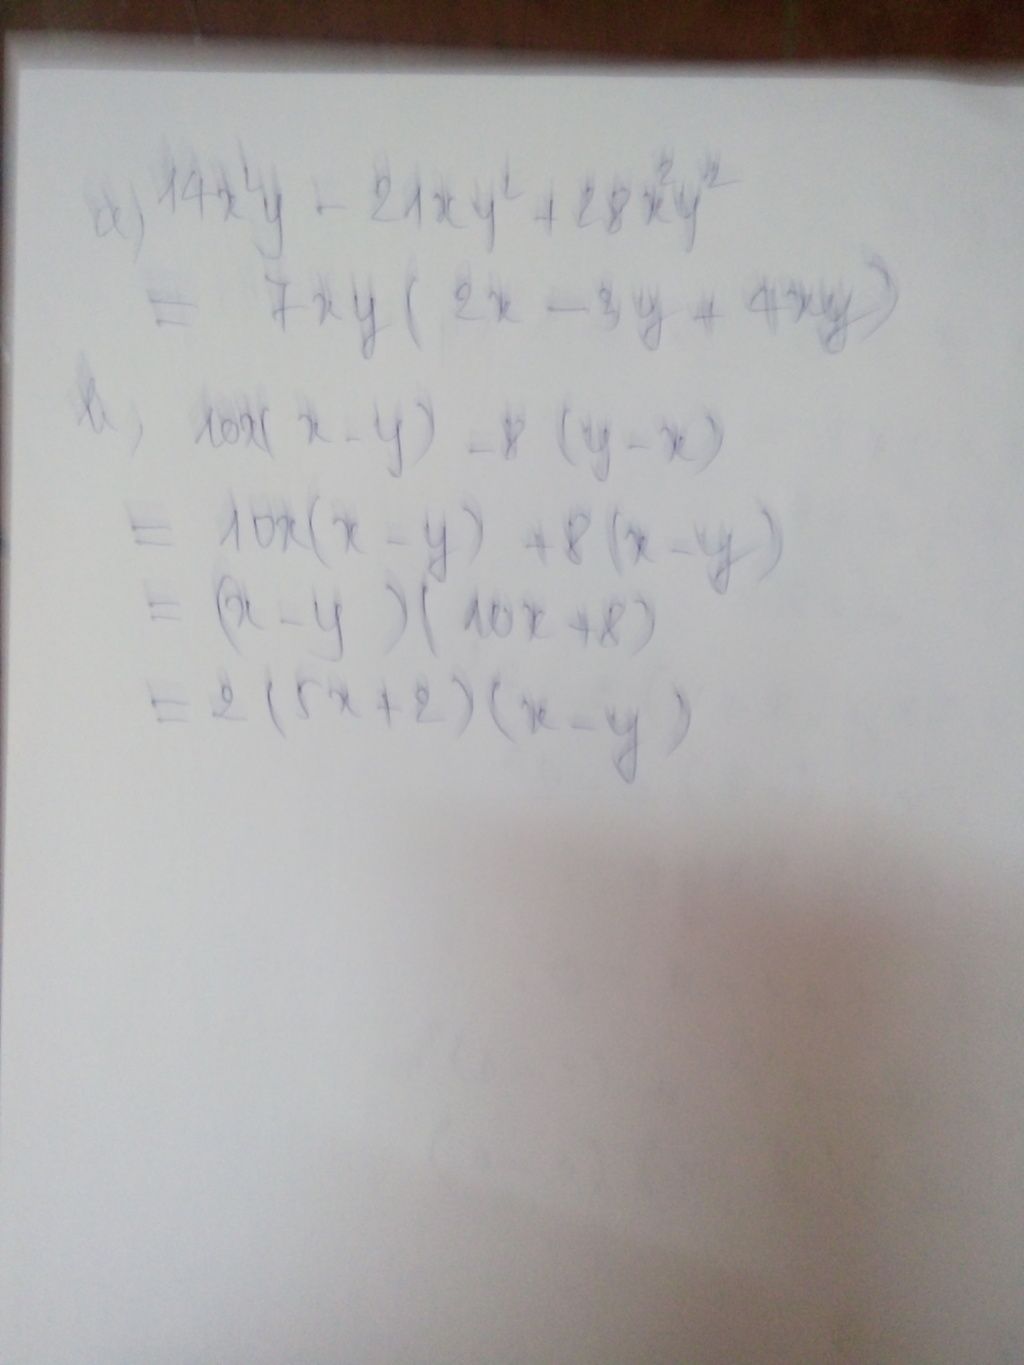 a) 14x²y - 21xy² + 28x²y²
= 7xy( 2x - 3y + 4xy)
b, 10x( x - y) - 8 (y - x)
= 10x(x - y) + 8(x - y)
= (x - y )( 10x + 8)
= 2(5x + 2)(x - y )